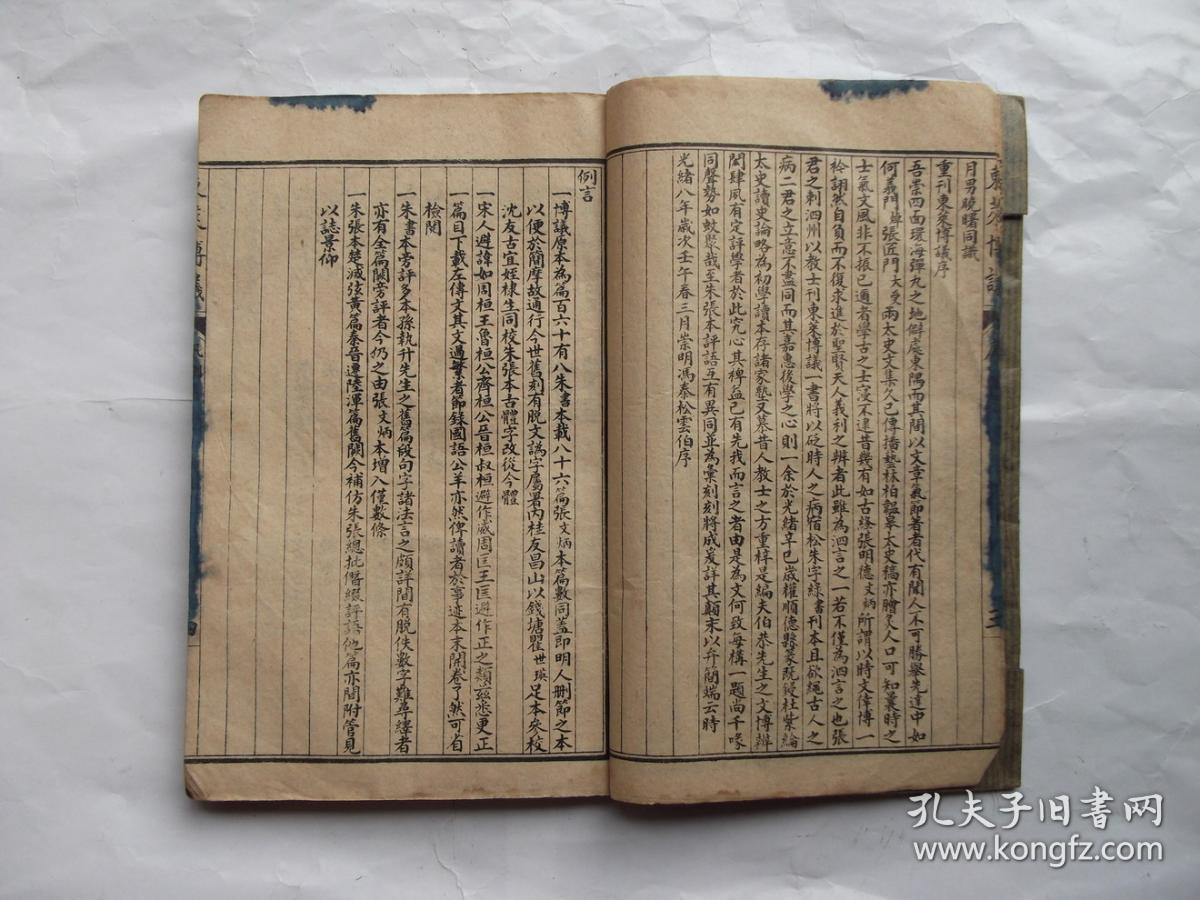 月男曉曙同識
重刊東萊博議序
吾崇四面環海彈丸之地僻處東隅而其間以文章氣節著者代有聞人不可勝舉先達中如
何義門張匠門大受兩太史文集久已傳播藝林柏謳皋太史稿亦膾炙人口可知曩時之
士氣文風非不振已適者學古之士寖不逮昔幾有如古絳張明德文炳所謂以時文倖博一
衿詡然自負而不復求進於聖賢天人義利之辨者此雖為泗言之一若不僅為泗言之也張
君之刺泗州以教士刊東萊博議一書將以砭時人之病宿松朱字綠書刊本且欲繩古人之
病二君之立意不盡同而其嘉惠後學之心則一余於光緒辛巳歲權順德縣篆既鋟杜紫綸
太史讀史論略為初學讀本存諸家塾又慕昔人教士之方重梓是編夫伯恭先生之文博辨
閎肆夙有定評學者於此究心其裨益已有先我而言之者由是為文何致每構一題尚千喙
同聲勢如蚊聚哉至朱張本評語互有異同並為彙刻刻將成爰詳其顛末以弁簡端云時
光緒八年歲次壬午春三月崇明馮泰松雲伯序
例言
一博議原本為篇百六十有八朱書本載八十六篇張文炳本篇數同蓋即明人刪節之本
以便於簡摩故通行今世舊刻有脫文譌字屬署內桂友昌山以錢塘瞿世瑛足本參校
沈友古宜姪棣生同校朱張本古體字改從今體
宋人避諱如周桓王魯桓公齊桓公晉桓叔桓避作威周匡王匡避作正之類茲悉更正
一篇目下載左傳文其文過繁者節錄國語公羊亦然俾讀者於事迹本末開卷了然可省
檢閱
一朱書本旁評多本孫執升先生之舊篇段句字諸法言之頗詳間有脫佚數字難尋繹者
亦有全篇闕旁評者今仍之由張文炳本增入僅數條
一朱張本楚滅弦黃篇秦晉遷陸渾篇舊闕今補仿朱張總批僭綴評語他篇亦間附管見
以誌景仰
孔夫子旧书网
www.kongfz.com